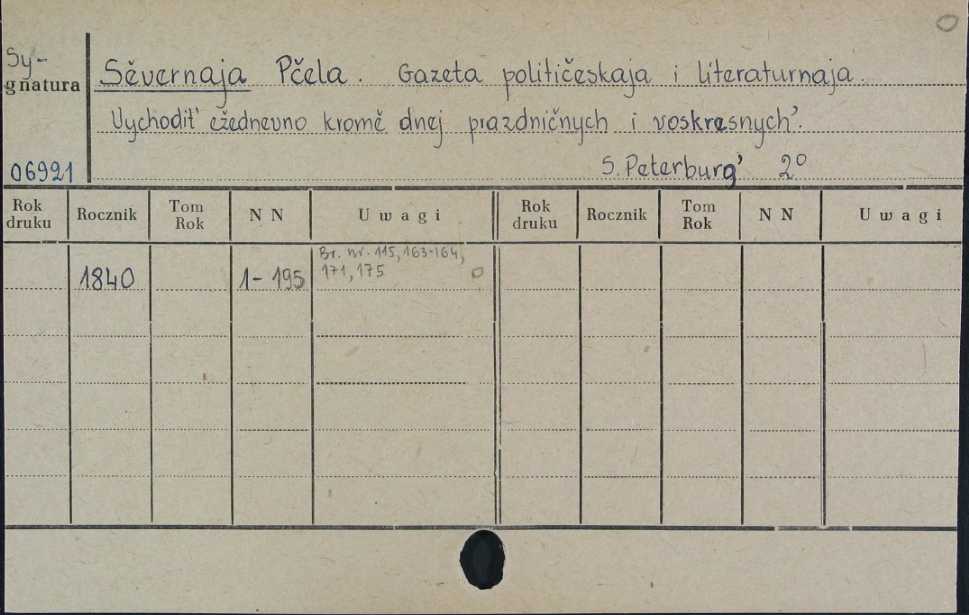 Sy-
gnatura
Sěvernaja Pčela. Gazeta političeskaja i literaturnaja.
Vychodit' ežednevno kromě dnej prazdničnych i voskresnych'.
06921 S. Peterburg' 2°
Rok druku Rocznik Tom Rok NN Uwagi Rok druku Rocznik Tom Rok NN Uwagi
Br. nr. 115, 163-164,
1840 1-195 171, 175